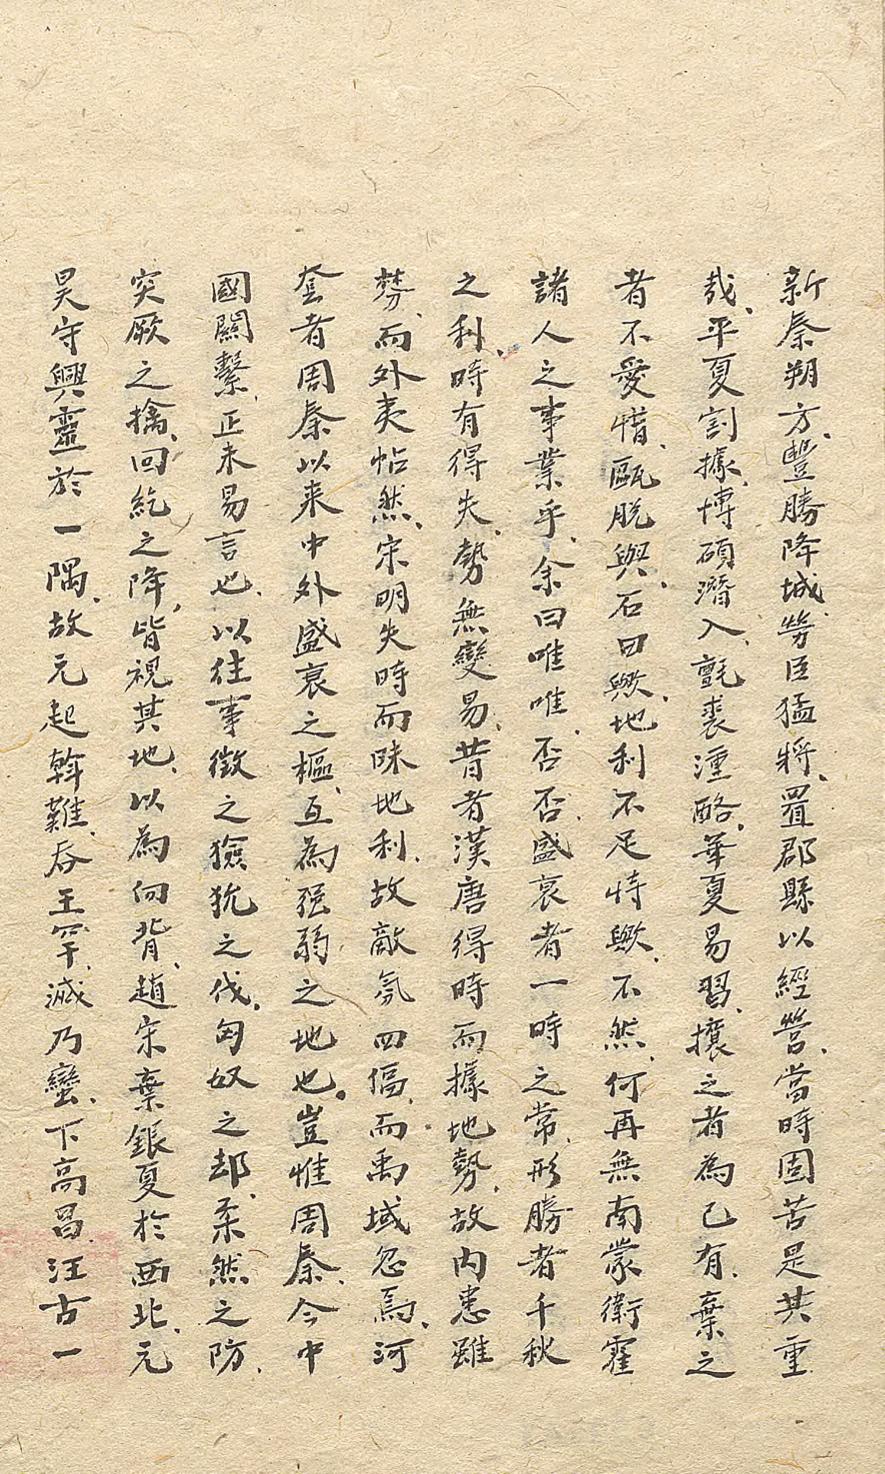 新秦朔方、豐勝降城、勞臣猛將、置郡縣以經營、當時固若是其重
哉、平夏割據、博碩潛入、氈裘湩酪、華夏易習、攘之者為己有、棄之
者不愛惜、甌脫與、石田歟、地利不足恃歟、不然、何再無南蒙衛霍
諸人之事業乎、余曰唯唯、否否、盛衰者一時之常、形勝者千秋
之利、時有得失、勢無變易、昔者漢唐得時而據地勢、故內患雖
棼、而外夷帖然、宋明失時而昧地利、故敵氛四偪、而禹域忽焉、河
套者周秦以來中外盛衰之樞、互為强弱之地也。豈惟周秦、今中
國關繫、正未易言也、以往事徵之、獫狁之伐、匈奴之却、柔然之防、
突厥之擒、回紇之降、皆視其地、以為向背、趙宋棄銀夏於西北、元
昊守興靈於一隅、故元起斡難、吞王罕、滅乃蠻、下高昌、汪古一